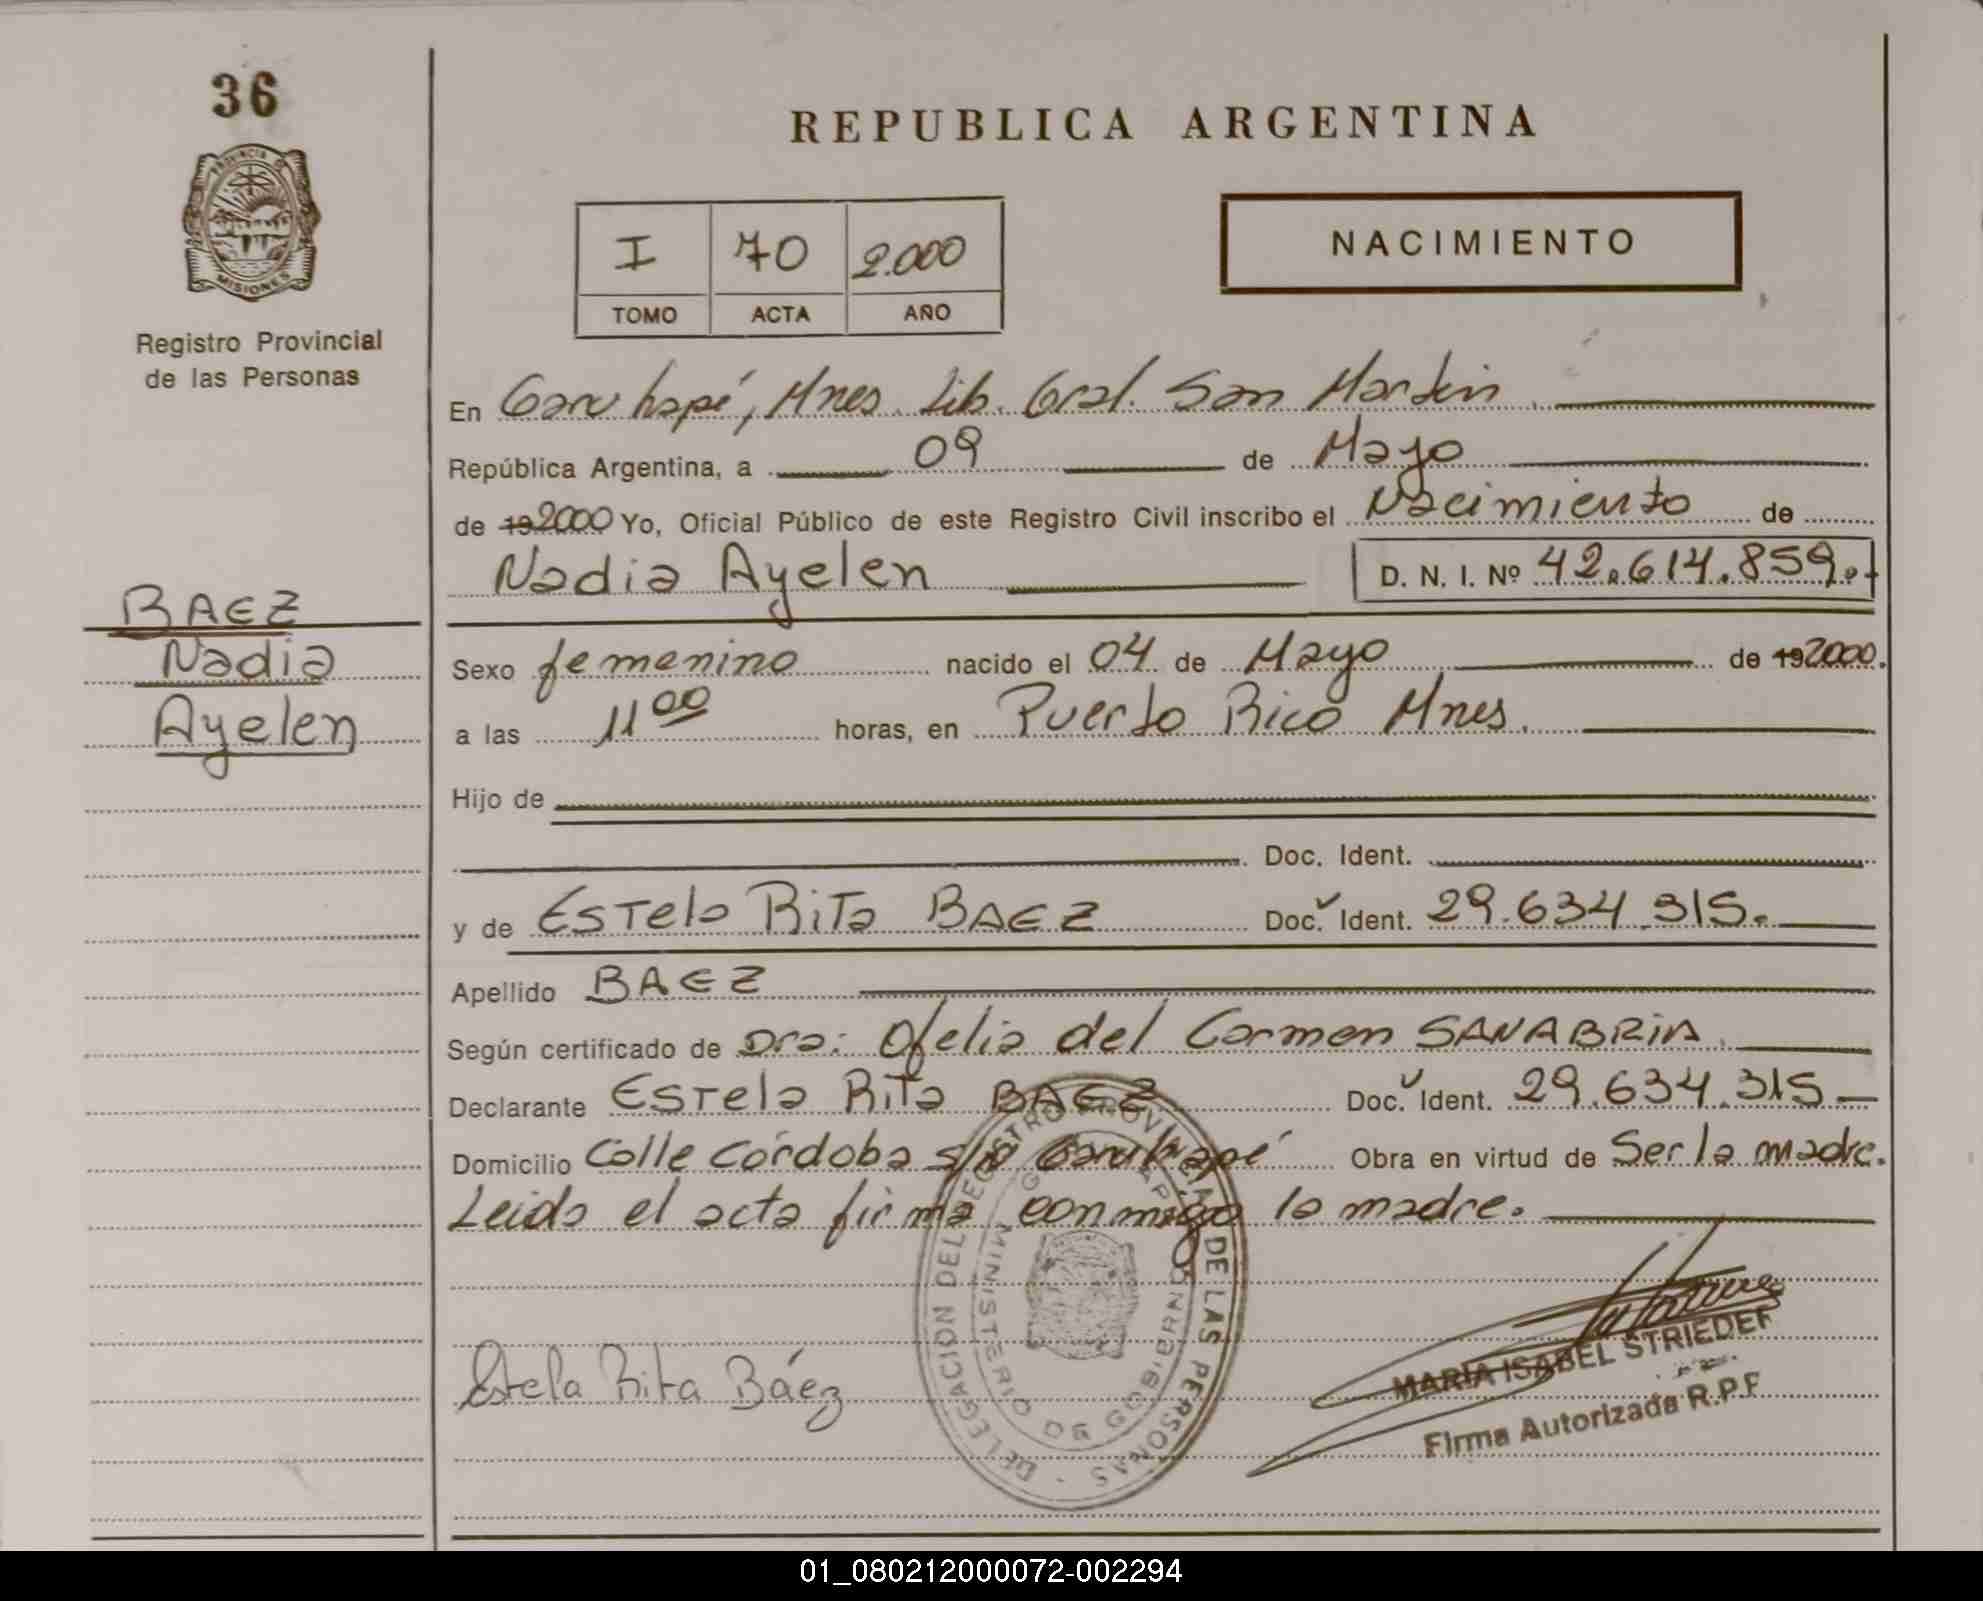 36
REPUBLICA ARGENTINA
PROVINCIA DE
MISIONES
Registro Provincial
de las Personas
I 70 2.000
TOMO ACTA AÑO
NACIMIENTO
En Garuhapé, Mnes. Lib. Gral. San Martin.
República Argentina, a 09 de Mayo
de 19 2000 Yo, Oficial Público de este Registro Civil inscribo el Nacimiento de
Nadia Ayelen D. N. I. Nº 42.614.859.-
BAEZ
Nadia
Ayelen
Sexo femenino nacido el 04 de Mayo de 19 2000.
a las 11 00 horas, en Puerto Rico Mnes.
Hijo de
Doc. Ident.
y de Estela Rita BAEZ Doc. Ident. 29.634.315.
Apellido BAEZ
Según certificado de Dra: Ofelia del Carmen SANABRIA.
Declarante Estela Rita BAEZ Doc. Ident. 29.634.315
Domicilio Calle Córdoba s/n Garuhapé Obra en virtud de Ser la madre.
Leida el acta firma conmigo la madre.
DELEGACION DEL REGISTRO PROVINCIAL DE LAS PERSONAS -
MINISTERIO DE GOBIERNO
Estela Rita Báez
MARIA ISABEL STRIEDER
Firma Autorizada R.P.P
01_080212000072-002294